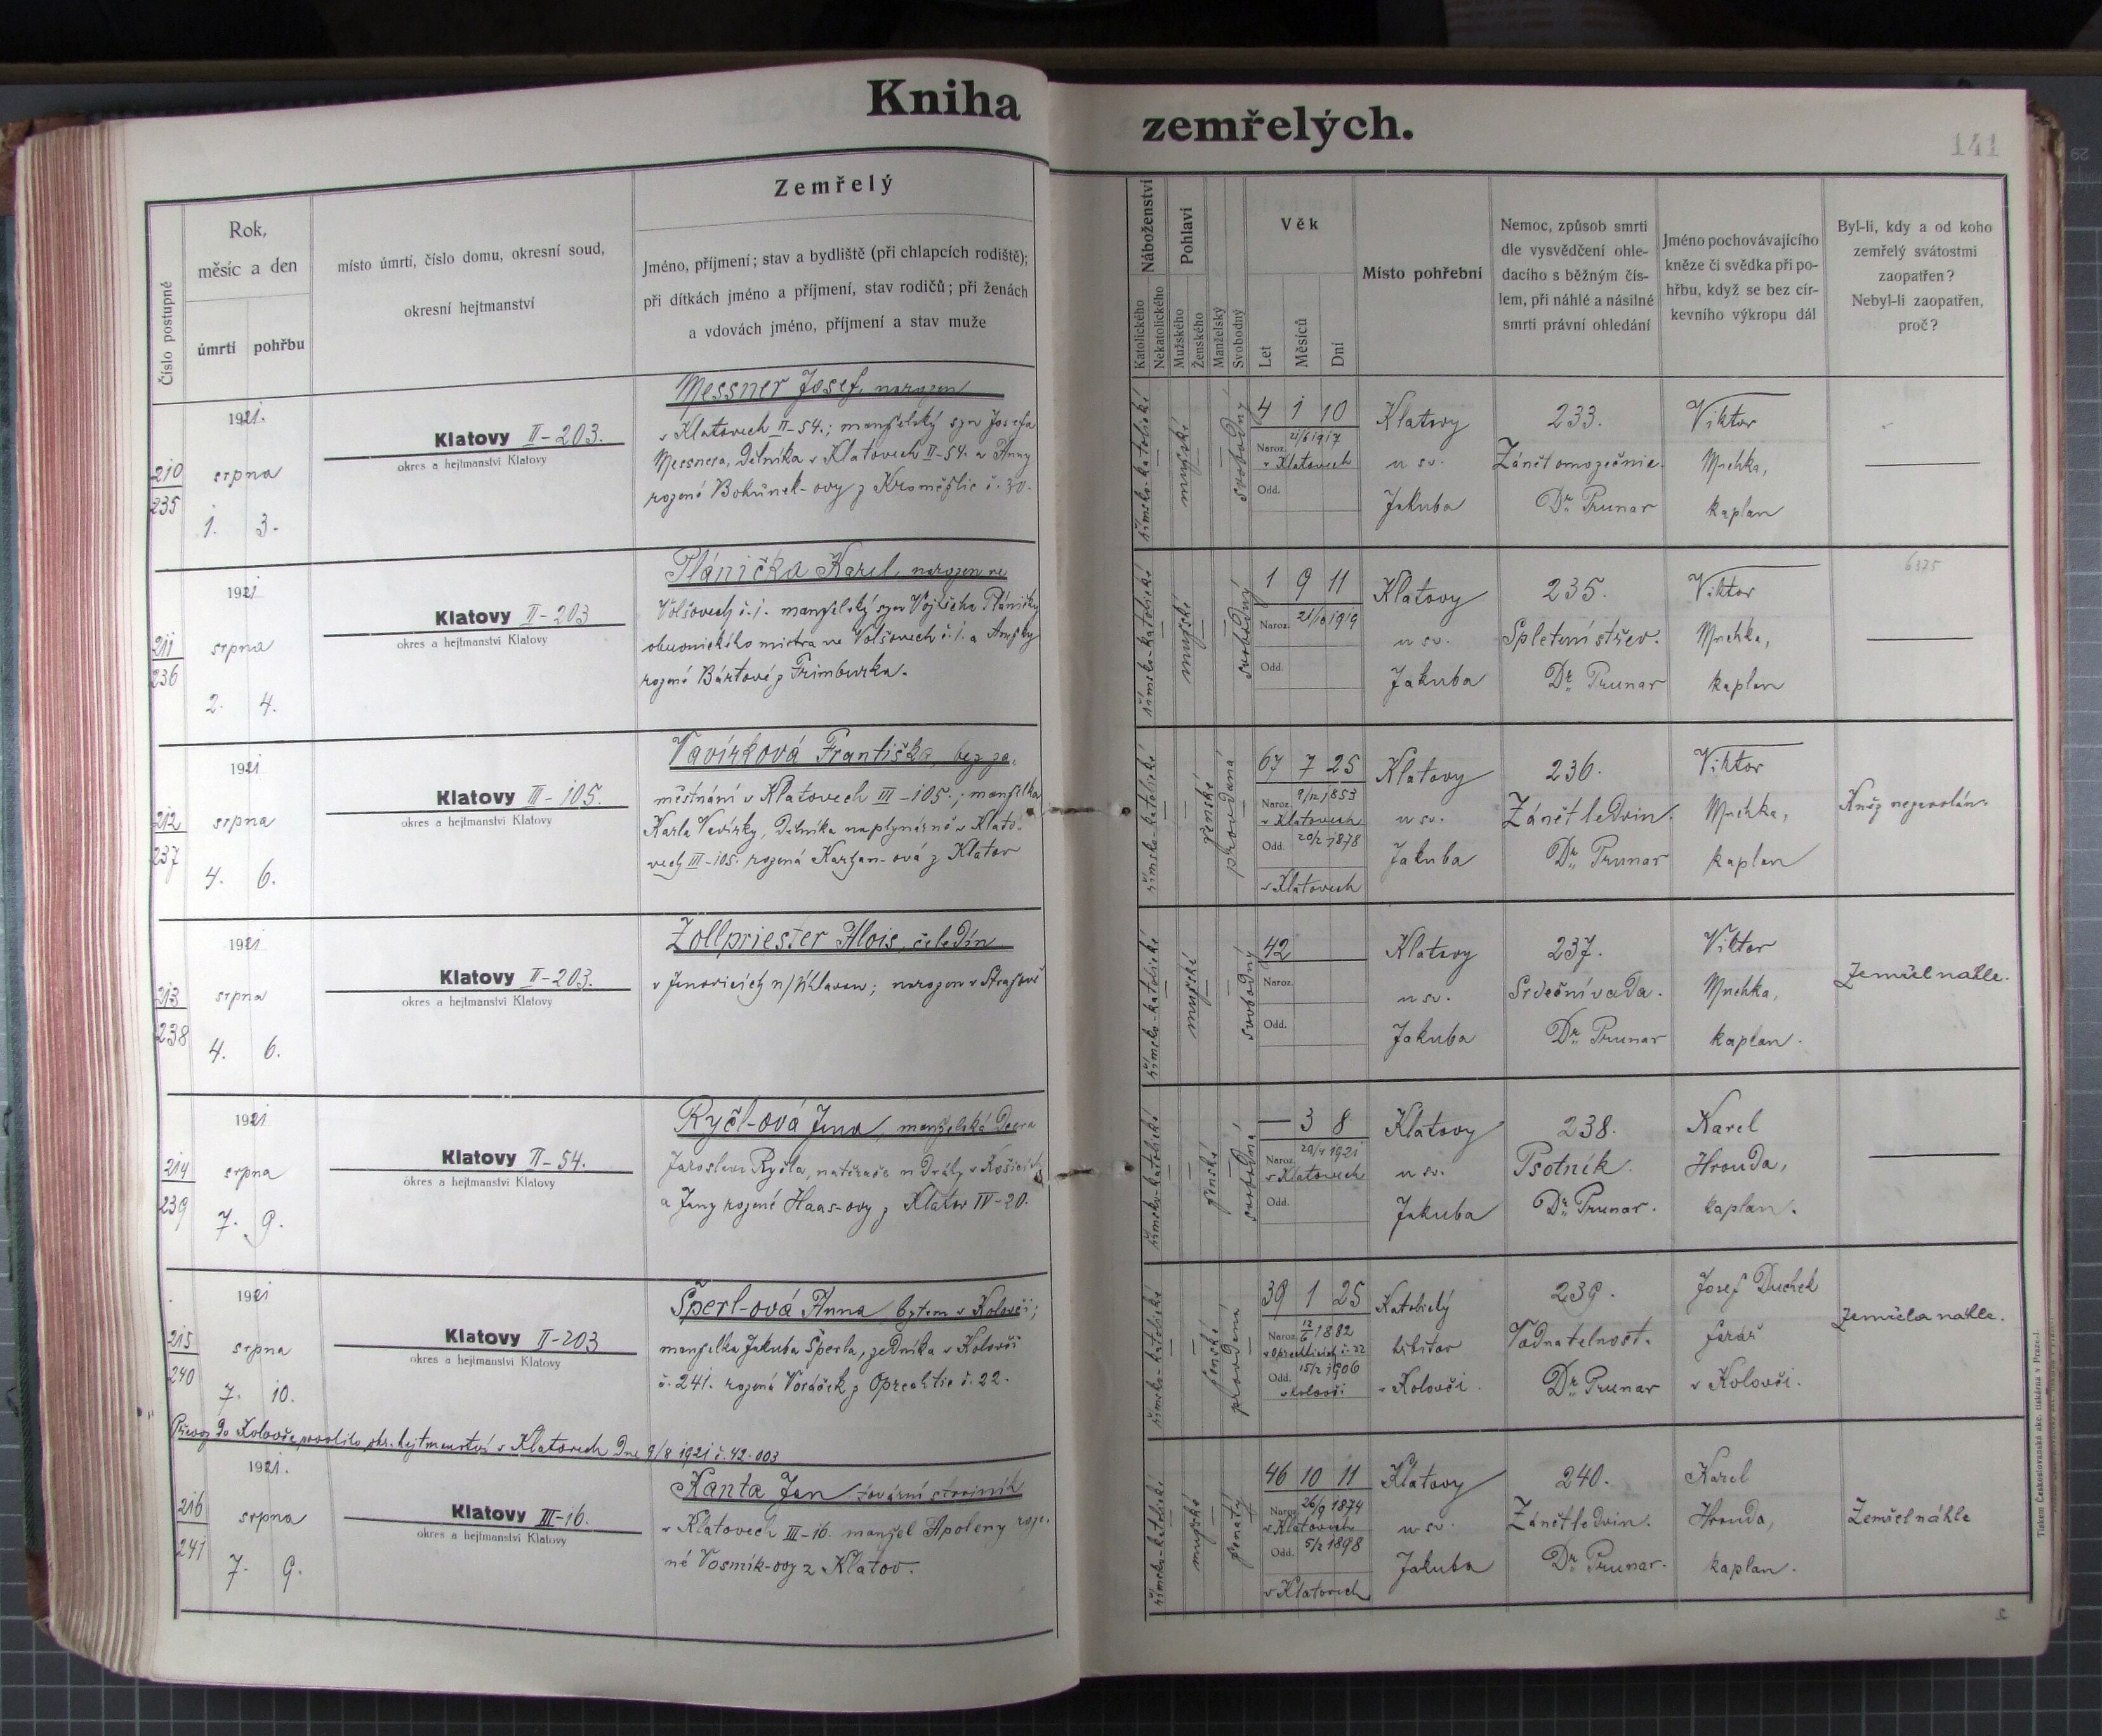 Kniha
zemřelých.
141
Číslo postupné
Rok,
měsíc a den
úmrtí
pohřbu
místo úmrtí, číslo domu, okresní soud,
okresní hejtmanství
Zemřelý
Jméno, příjmení; stav a bydliště (při chlapcích rodiště);
při dítkách jméno a příjmení, stav rodičů; při ženách
a vdovách jméno, příjmení a stav muže
Náboženství
Katolického
Nekatolického
Pohlaví
Mužského
Ženského
Manželský
Svobodný
Věk
Let
Měsíců
Dní
Místo pohřební
Nemoc, způsob smrti
dle vysvědčení ohle-
dacího s běžným čís-
lem, při náhlé a násilné
smrti právní ohledání
Jméno pochovávajícího
kněze či svědka při po-
hřbu, když se bez cír-
kevního výkropu dál
Byl-li, kdy a od koho
zemřelý svátostmi
zaopatřen?
Nebyl-li zaopatřen,
proč?
210
235
1921.
srpna
1. 3.
Klatovy II-203.
okres a hejtmanství Klatovy
Messner Josef, narozen
v Klatovech II-54.; manželský syn Josefa
Messnera, dělníka v Klatovech II-54. a Anny
rozené
římsko-katolické
mužské
svobodný
4 1 10
Naroz. 21/6 1917
v Klatovech
Odd.
Klatovy
u sv.
Jakuba
233.
Dr. Prunar
Viktor
kaplan
211
236
1921
srpna
2. 4.
Klatovy II-203
okres a hejtmanství Klatovy
Plánička Karel, narozen ve
Volšovech č.1. manželský syn Vojtěcha Pláničky
obuvnického mistra ve Volšovech č.1. a Anežky
rozené Bártové z
římsko-katolické
mužské
svobodný
1 9 11
Naroz. 21/10 1919
Odd.
Klatovy
u sv.
Jakuba
235.
Spletení střev.
Dr. Prunar
Viktor
kaplan
6375
212
237
1921
srpna
4. 6.
Klatovy III-105.
okres a hejtmanství Klatovy
Vavírková Františka, bez za-
městnání v Klatovech III-105.; manželka
Karla Vavírky, dělníka na plynárně v Klato-
vech III-105. rozená z Klatov
římsko-katolické
ženské
provdaná
67 7 25
Naroz. 9/12 1853
v Klatovech
Odd. 20/2 1878
v Klatovech
Klatovy
u sv.
Jakuba
236.
Zánět ledvin.
Dr. Prunar
Viktor
kaplan
Kněz nepovolán.
213
238
1921
srpna
4. 6.
Klatovy II-203.
okres a hejtmanství Klatovy
Zollpriester Alois, čeledín
v Janovicích n/Úhlavou; narozen v
římsko-katolické
mužské
svobodný
42
Naroz.
Odd.
Klatovy
u sv.
Jakuba
237.
Srdeční vada.
Dr. Prunar
Viktor
kaplan.
Zemřel náhle.
214
239
1921
srpna
7. 9.
Klatovy II-54.
okres a hejtmanství Klatovy
Ryčl-ová Jana, manželská dcera
Jaroslava Ryčla, natěrače u dráhy v Košicích
a Jany rozené Haas-ovy z Klatov IV-20.
římsko-katolické
ženské
svobodná
— 3 8
Naroz. 29/4 1921
v Klatovech
Odd.
Klatovy
u sv.
Jakuba
238.
Psotník.
Dr. Prunar.
Karel
Hrouda,
kaplan.
215
240
1921
srpna
7. 10.
Klatovy II-203
okres a hejtmanství Klatovy
Šperl-ová Anna bytem v Kolovči;
manželka Jakuba Šperla, zedníka v Kolovči
č. 241. rozená Voráček z Oprechtic č. 22.
římsko-katolické
ženské
provdaná
39 1 25
Naroz. 12/6 1882
č. 22
Odd. 15/2 1906
v Kolovči
Katolický
hřbitov
v Kolovči
239.
Vodnatelnost.
Dr. Prunar
Josef Duchek
farář
v Kolovči.
Zemřela náhle.
Převoz do Kolovče povolilo okr. hejtmanství v Klatovech dne 9/8 1921 č. 42.003
216
241
1921.
srpna
7. 9.
Klatovy III-16.
okres a hejtmanství Klatovy
Kanta Jan tovární strojník
v Klatovech III-16. manžel Apoleny roze-
né Vosmík-ovy z Klatov.
římsko-katolické
mužské
ženatý
46 10 11
Naroz. 26/9 1874
v Klatovech
Odd. 5/2 1898
v Klatovech
Klatovy
u sv.
Jakuba
240.
Zánět ledvin.
Dr. Prunar.
Karel
Hrouda,
kaplan.
Zemřel náhle